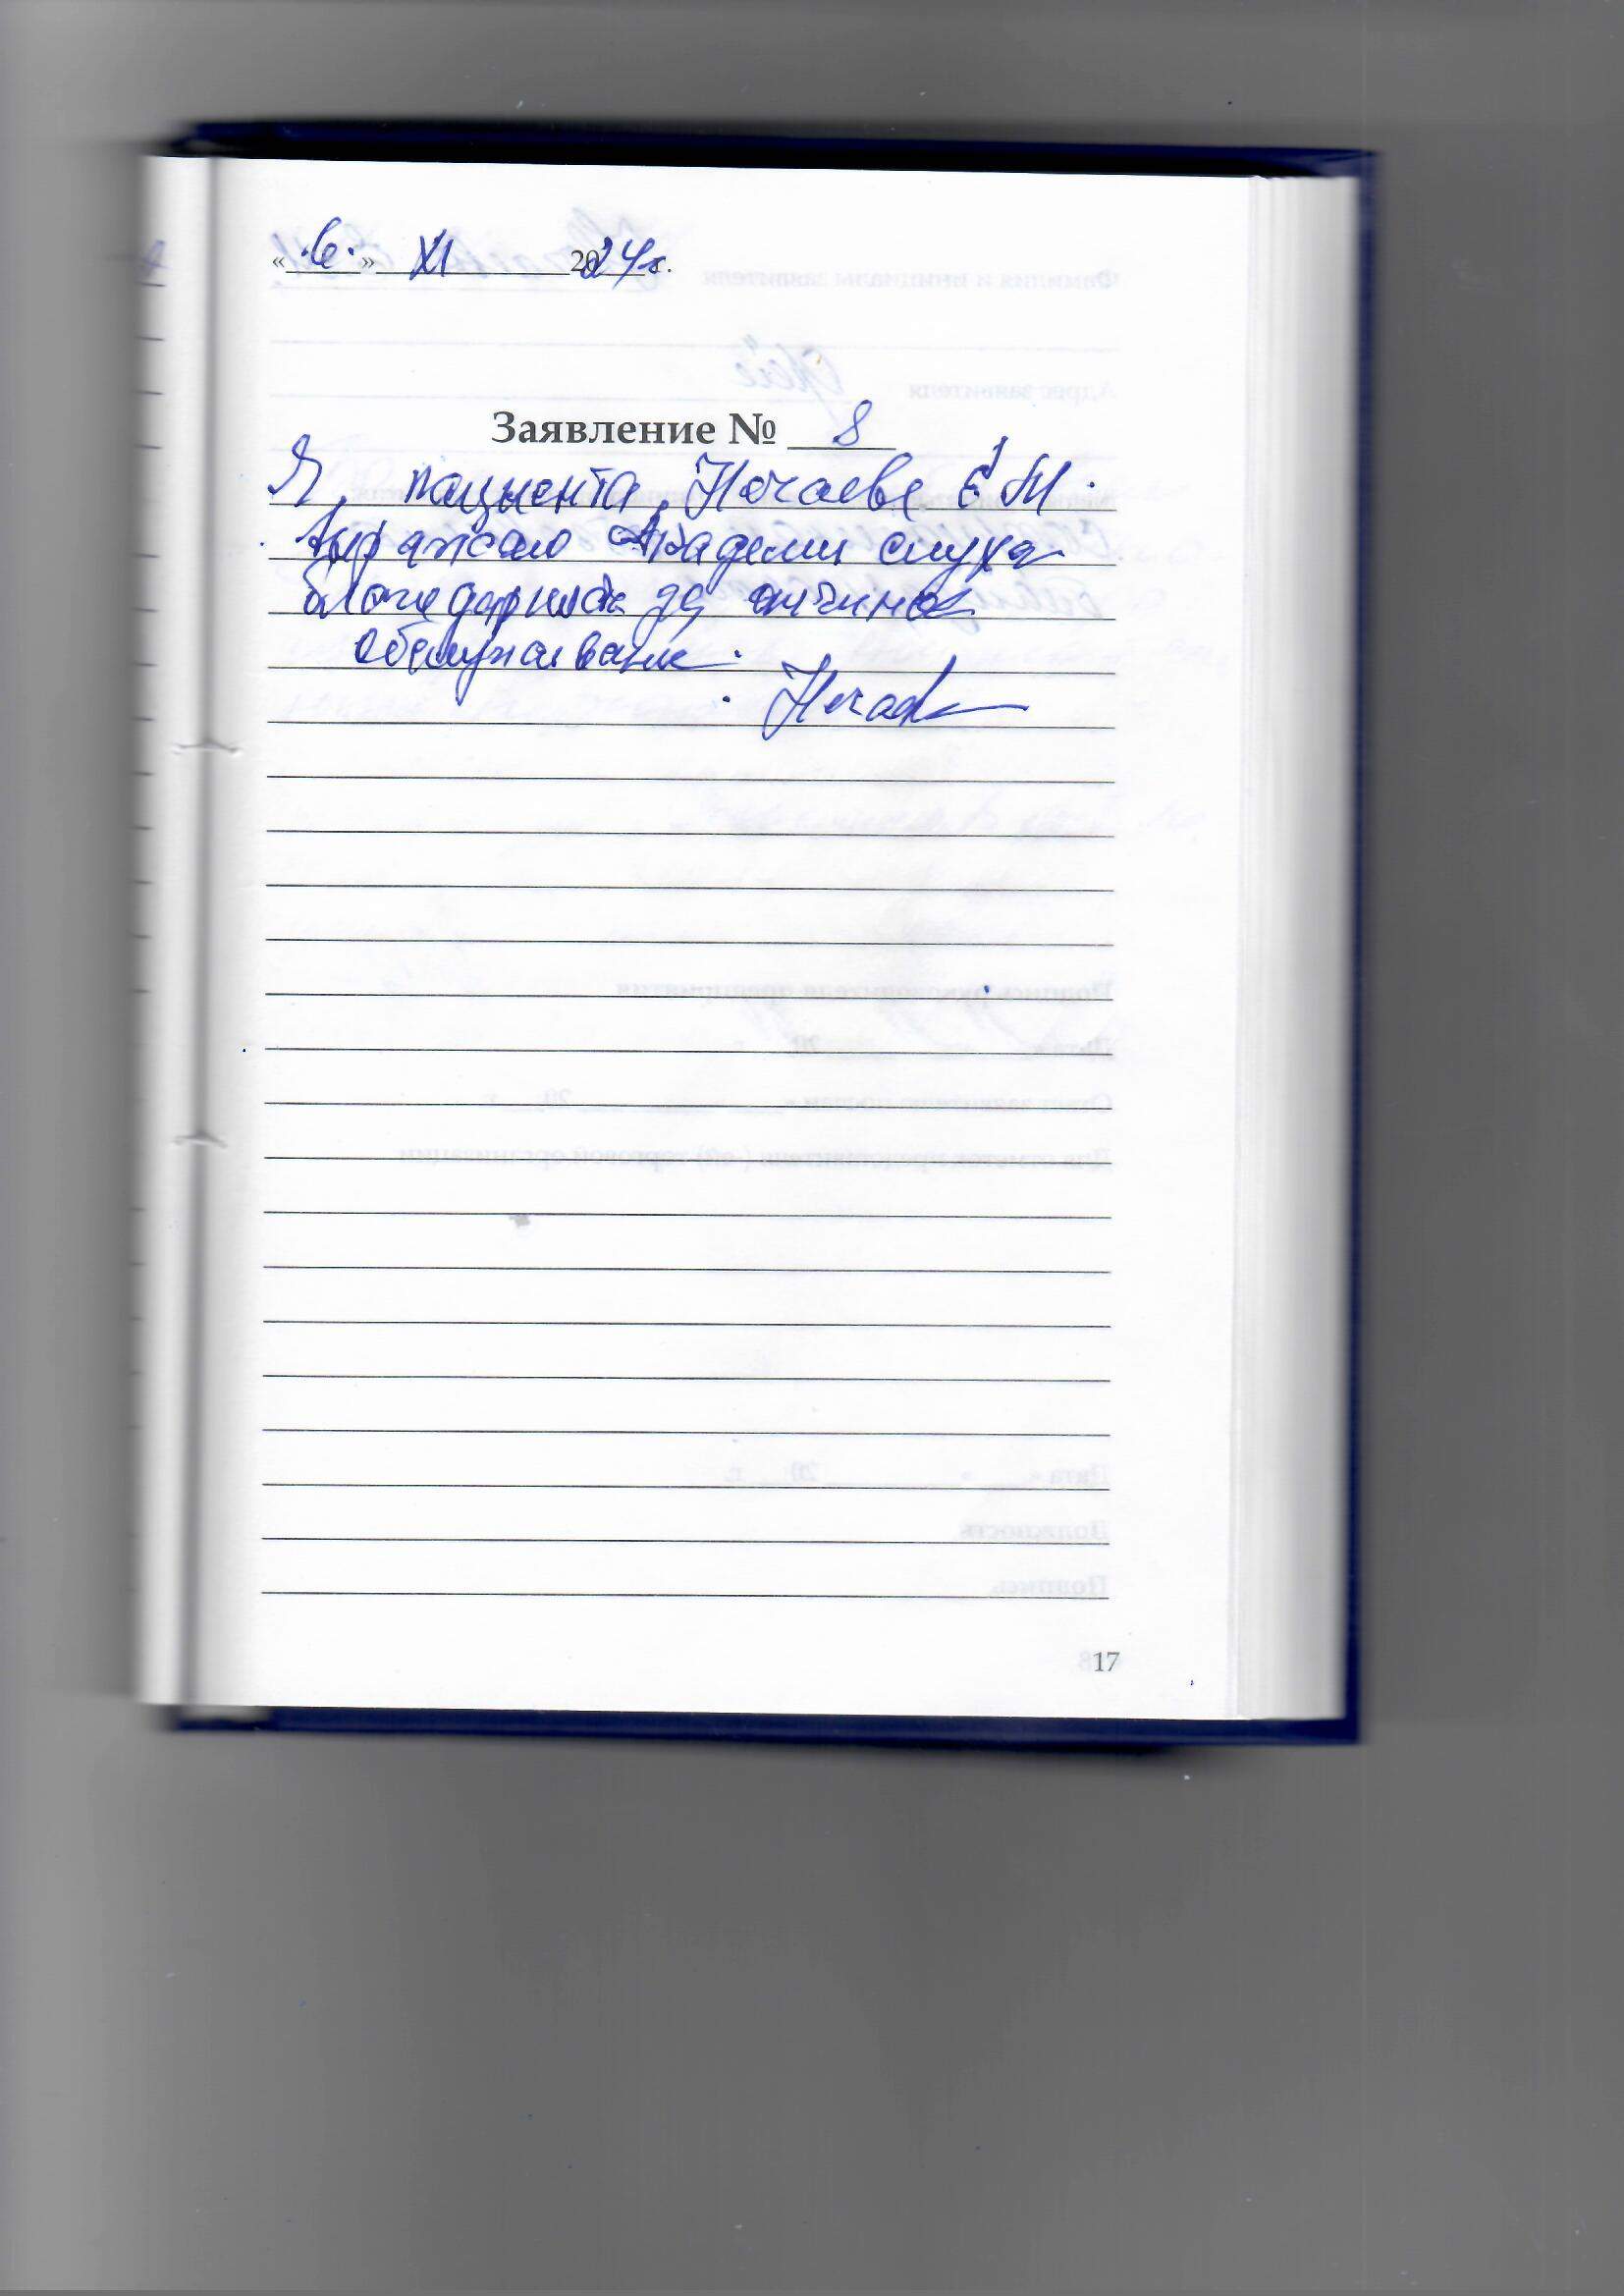 «6» XI 2024г.
Заявление № 8
Я, пациента, Нечаева Е М.
выражаю Академии слуха
благодарность за отличное
обслуживание.
17